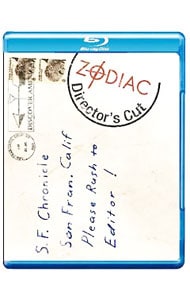 Blu-ray Disc
ZODIAC
Director's Cut
DISCOVER AMERICA
S.F. Chronicle
San Fran. Calif
Please Rush to
Editor !